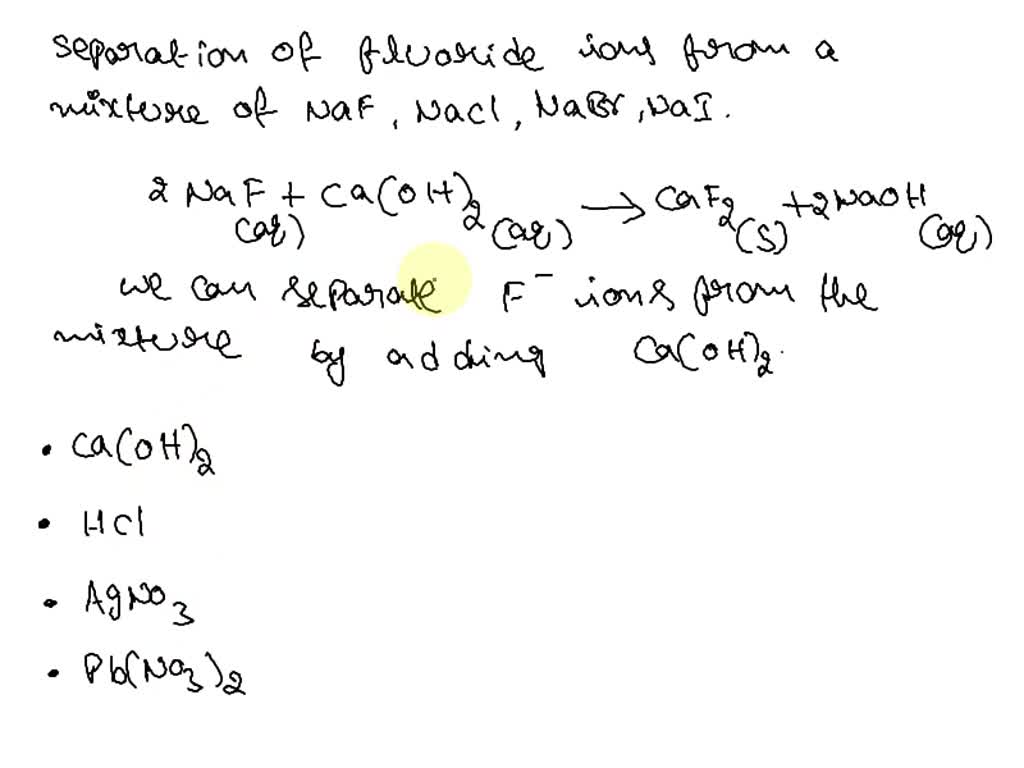 separation of fluoride ions from a
mixture of NaF, NaCl, NaBr, NaI.
2 NaF (aq) + Ca(OH)2 (aq) → CaF2 (s) + 2NaOH (aq)
we can separate F⁻ ions from the
mixture by adding Ca(OH)2.
• Ca(OH)2
• HCl
• AgNO3
• Pb(NO3)2